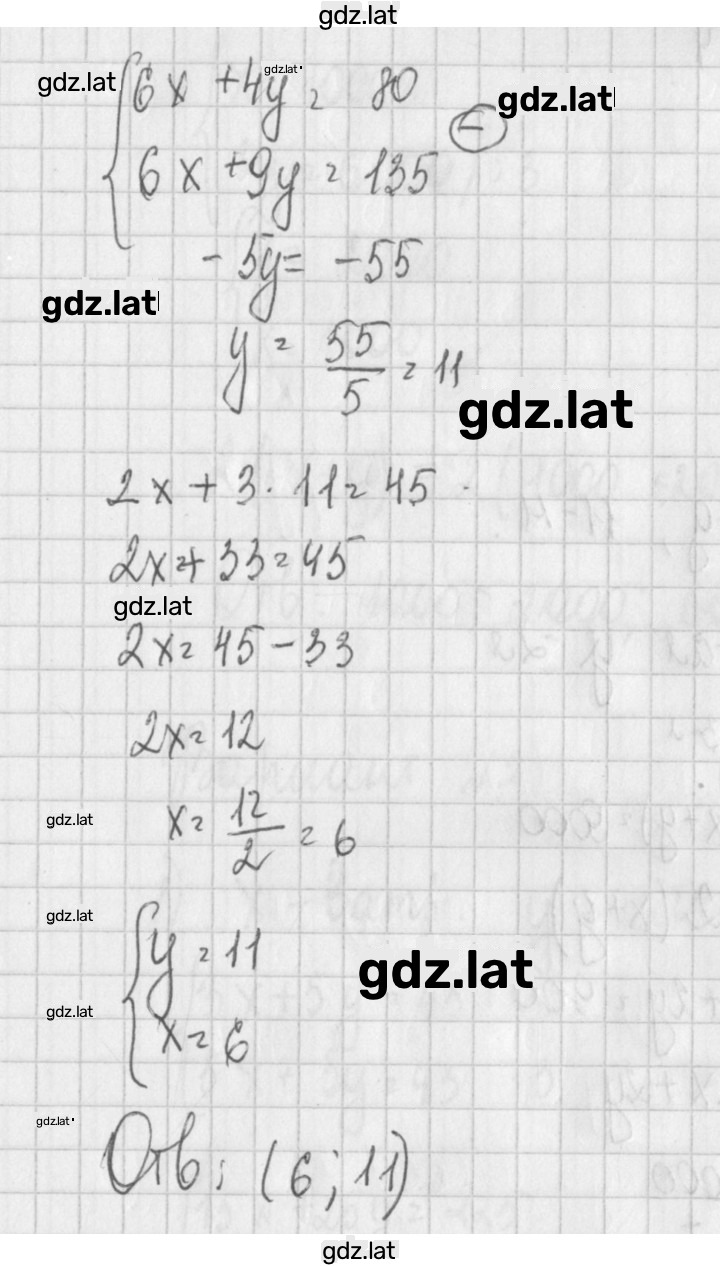 gdz.lat
gdz.lat
gdz.lat
6x + 4y = 80
gdz.lat
−
6x + 9y = 135
- 5y = -55
gdz.lat
y = 55/5 = 11
gdz.lat
2x + 3 · 11 = 45
2x + 33 = 45
gdz.lat
2x = 45 - 33
2x = 12
gdz.lat
x = 12/2 = 6
gdz.lat
y = 11
gdz.lat
gdz.lat
x = 6
gdz.lat
Отв: (6; 11)
gdz.lat